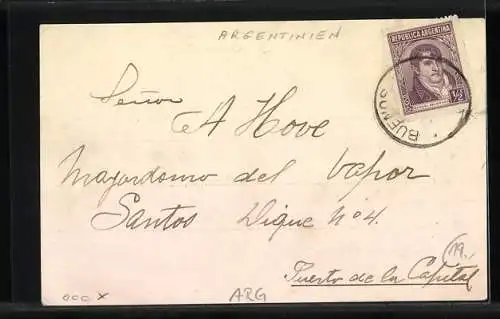 ARGENTINIEN
REPUBLICA ARGENTINA
½
BUENOS
Señor
A Hove
Mayordomo del Vapor
Santos Dique Nº 4.
Puerto de la Capital
19.
000 x
ARG